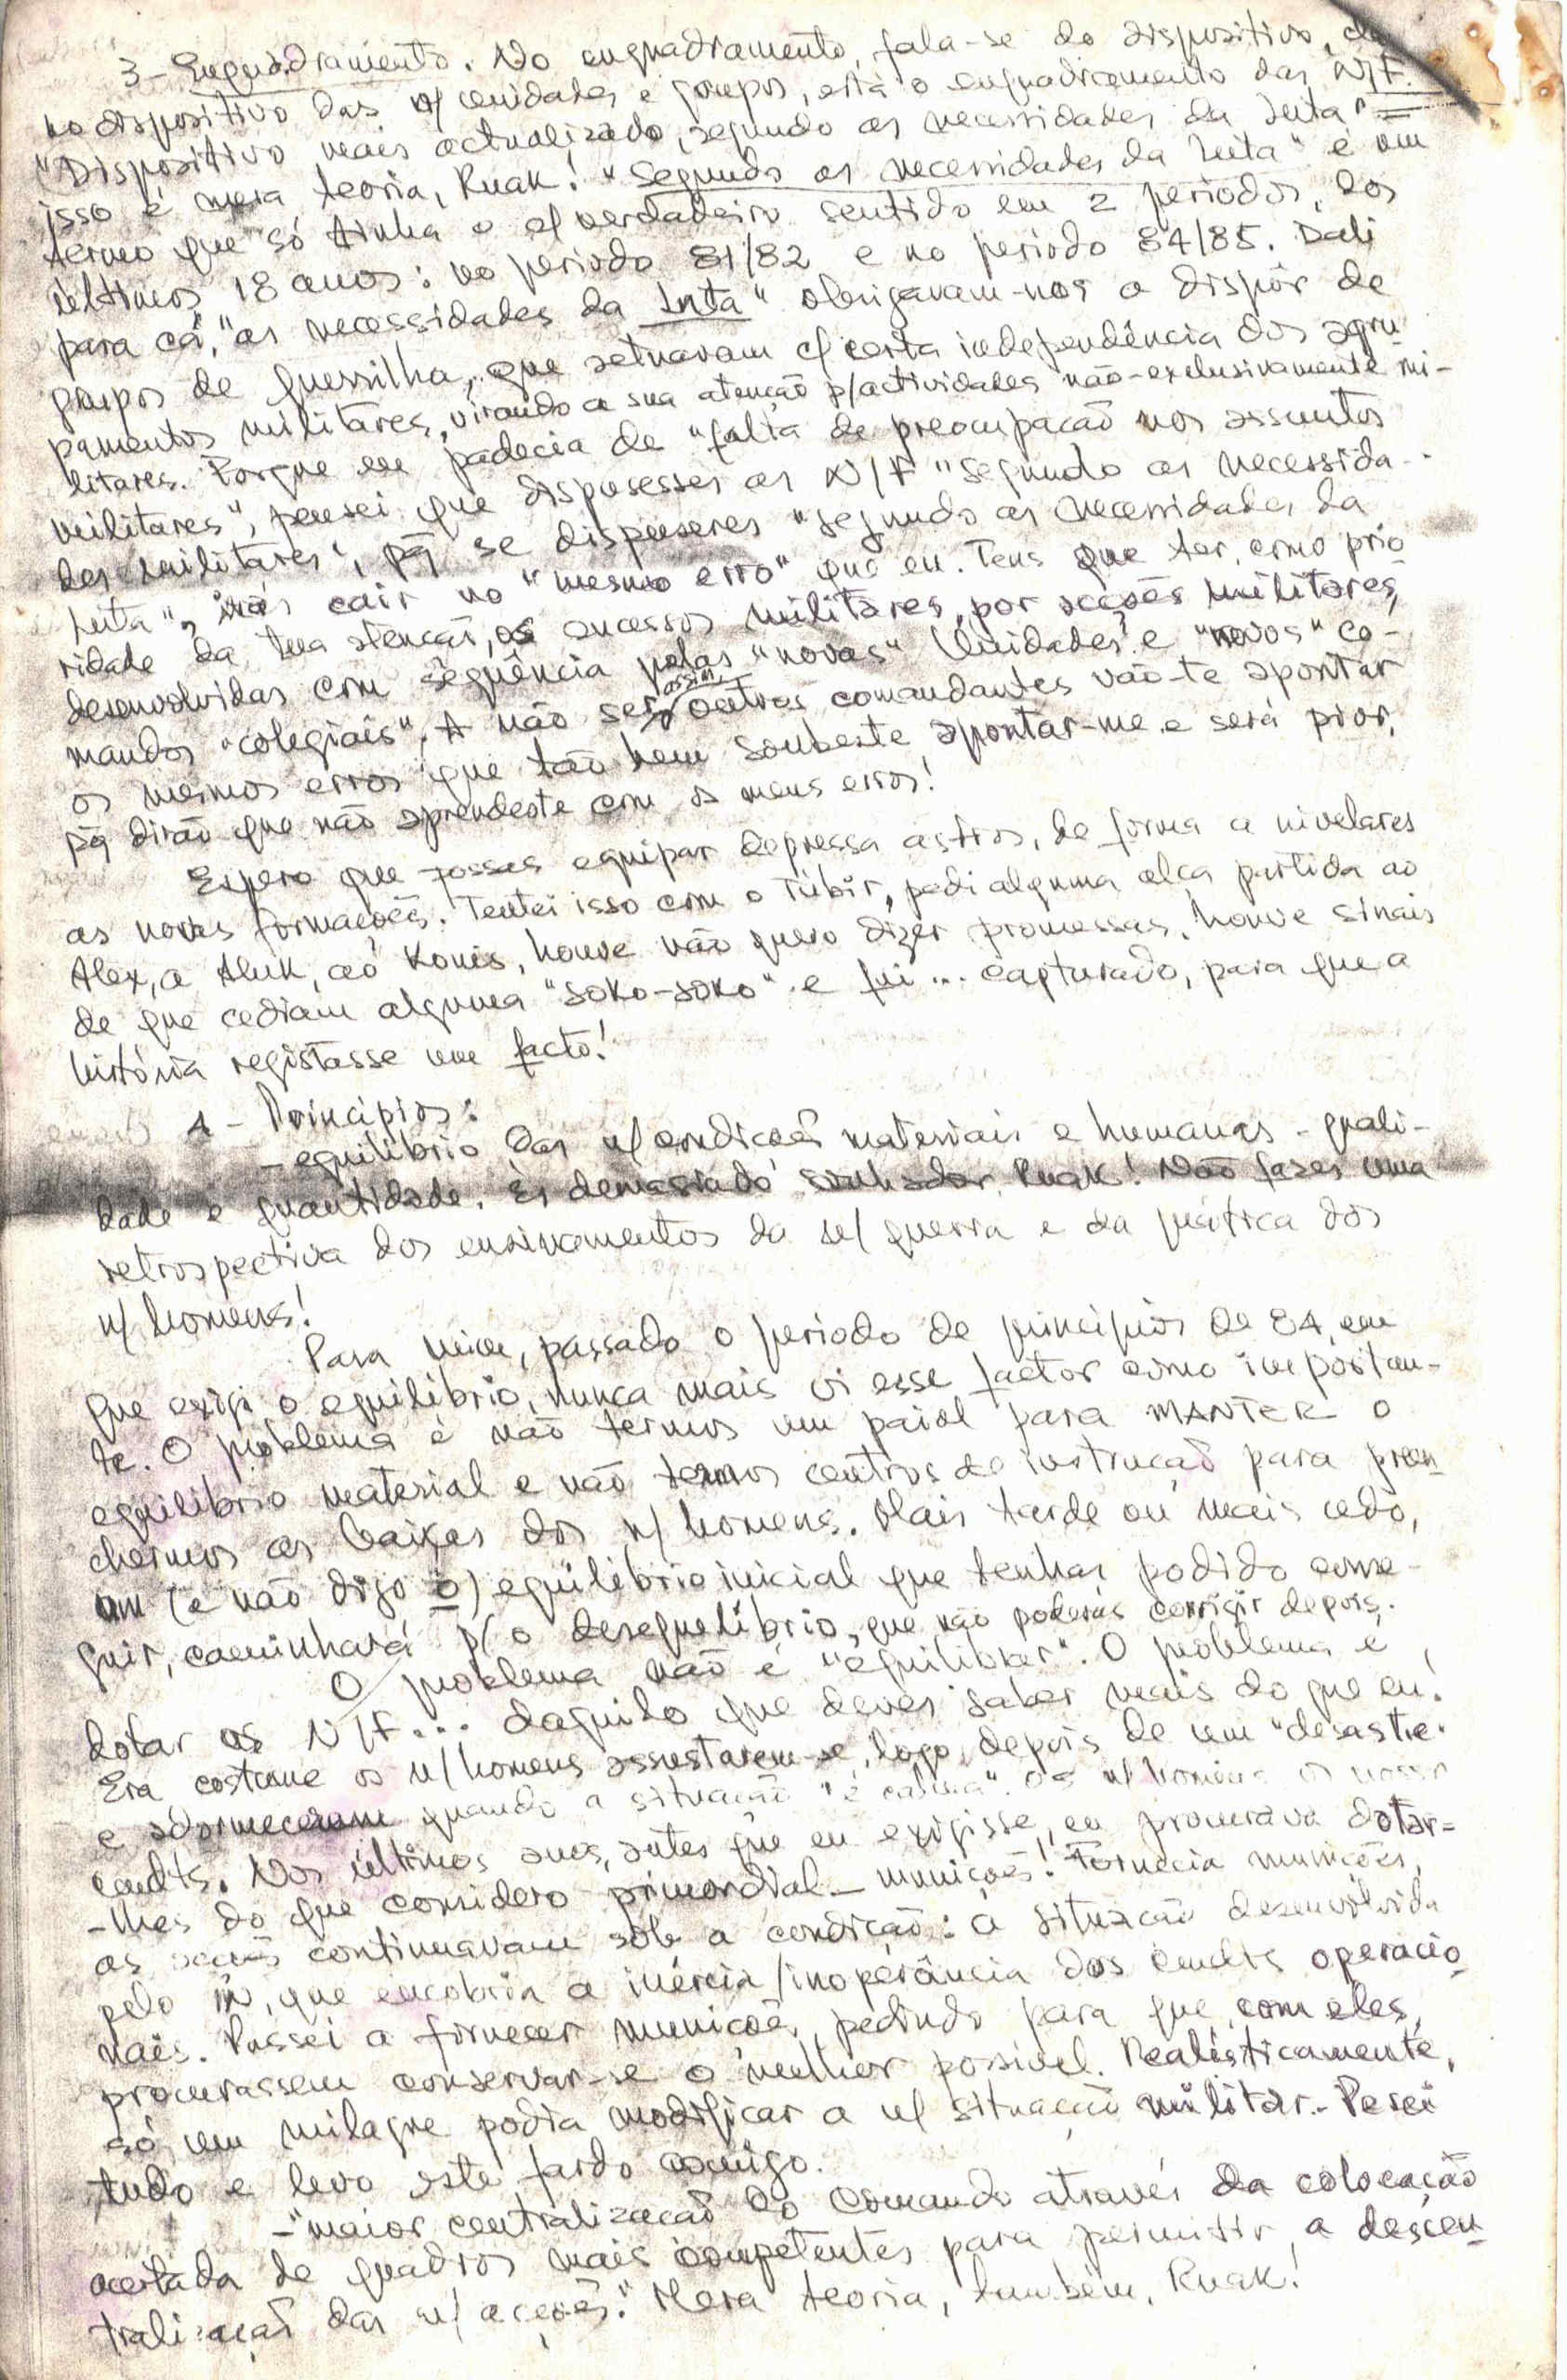 3 - Enquadramento. No enquadramento, fala-se do dispositivo, e
no dispositivo das n/ unidades e grupos, está o enquadramento das N/F.
"Dispositivo mais actualizado, segundo as necessidades da luta" =
isso é mera teoria, Ruak! "Segundo as necessidades da luta" é um
termo que só tinha o s/ verdadeiro sentido em 2 períodos, dos
últimos 18 anos: no período 81/82 e no período 84/85. Dali
para cá, "as necessidades da luta" obrigavam-nos a dispôr de
grupos de guerrilha, que actuavam c/ certa independência dos agru-
pamentos militares, virando a sua atenção p/ actividades não-exclusivamente mi-
litares. Porque eu padecia de "falta de preocupação nos assuntos
militares", pensei que dispusesses as N/F "segundo as necessida-
des militares", pq se dispuseres "segundo as necessidades da
luta", irás cair no "mesmo erro" que eu. Tens que ter, como prio-
ridade da tua atenção, os sucessos militares, por acções militares,
desenvolvidas com sequência pelas "novas" Unidades e "novos" co-
mandos "colegiais". A não ser assim, outros comandantes vão-te apontar
os mesmos erros que tão bem soubeste apontar-me e será pior,
pq dirão que não aprendeste com os meus erros!
Espero que possas equipar depressa as tros, de forma a nivelares
as novas formações. Tentei isso com o Tubir, pedi alguma alça partida ao
Alex, a Aluk, ao Konis, houve não quero dizer promessas, houve sinais
de que cediam alguma "soko-soko" e fui... capturado, para que a
história registasse um facto!
4 - Princípios:
- equilíbrio das n/ condições materiais e humanas - quali-
dade e quantidade. És demasiado sonhador, Ruak! Não fazes uma
retrospectiva dos ensinamentos da n/ guerra e da prática dos
n/ homens!
Para mim, passado o período de princípios de 84, em
que exigi o equilíbrio, nunca mais vi esse factor como importan-
te. O problema é não termos um paiol para MANTER o
equilíbrio material e não termos centros de instrução para preen-
chermos as baixas dos n/ homens. Mais tarde ou mais cedo,
um (e não digo o) equilíbrio inicial que tenhas podido conse-
guir, caminhará p/ o desequilíbrio, que não poderás corrigir depois.
O problema não é "equilibrar". O problema é
dotar as N/F... daquilo que deves saber mais do que eu!
Era costume os n/ homens assustarem-se, logo depois de um "desastre"
e adormecerem quando a situação "é calma". Os n/ homens os nossos
cmdts. Nos últimos anos, antes que eu exigisse, eu procurava dotar-
-lhes do que considero primordial - munições! Fornecia munições,
as acções continuavam sob a condição: a situação desenvolvida
pelo in, que encobria a inércia/inoperância dos cmdts operacio-
nais. Passei a fornecer munições, pedindo para que, com eles,
procurassem conservar-se o melhor possível. Realisticamente,
só um milagre podia modificar a n/ situação militar. Pesei
tudo e levo este fardo comigo.
- "maior centralização do Comando através da colocação
acertada de quadros mais competentes para permitir a descen-
tralização das n/ acções." Mera teoria, também, Ruak!